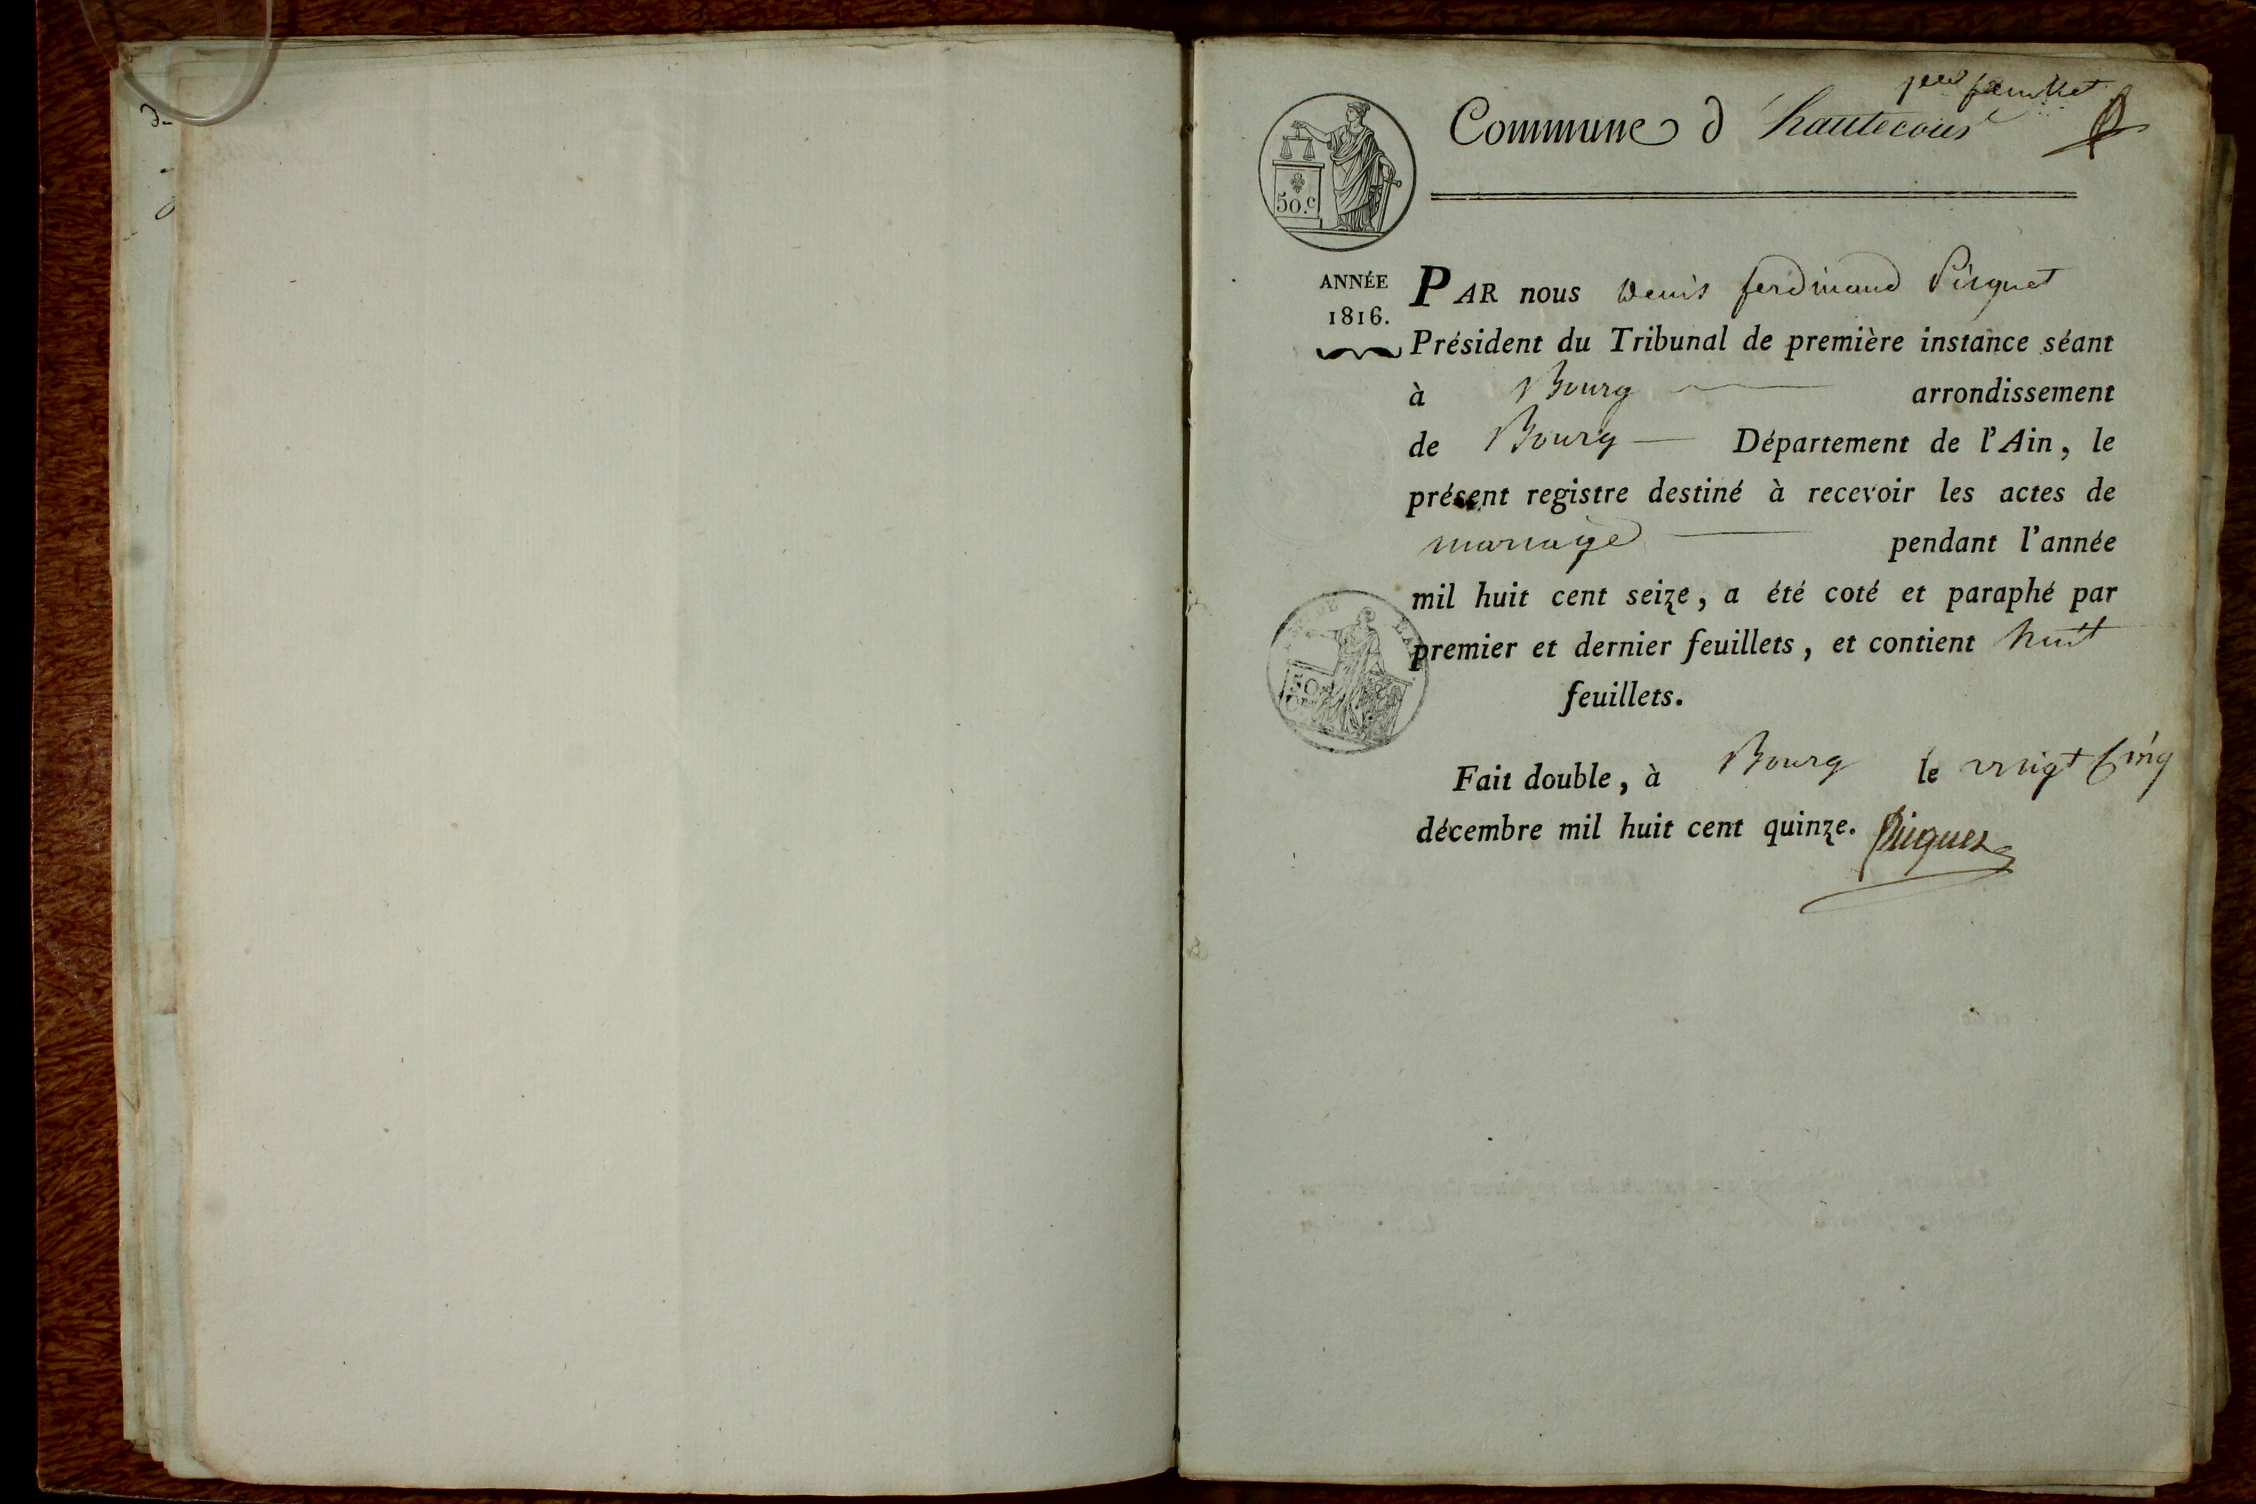 1er feuillet
Commune d'hautecour
50.c
ANNÉE
1816.
PAR nous Denis ferdinand Piquet
Président du Tribunal de première instance séant
à Bourg arrondissement
de Bourg Département de l'Ain, le
présent registre destiné à recevoir les actes de
mariage pendant l'année
mil huit cent seize, a été coté et paraphé par
premier et dernier feuillets, et contient huit
feuillets.
50
Fait double, à Bourg le vingt Cinq
décembre mil huit cent quinze. Piquet